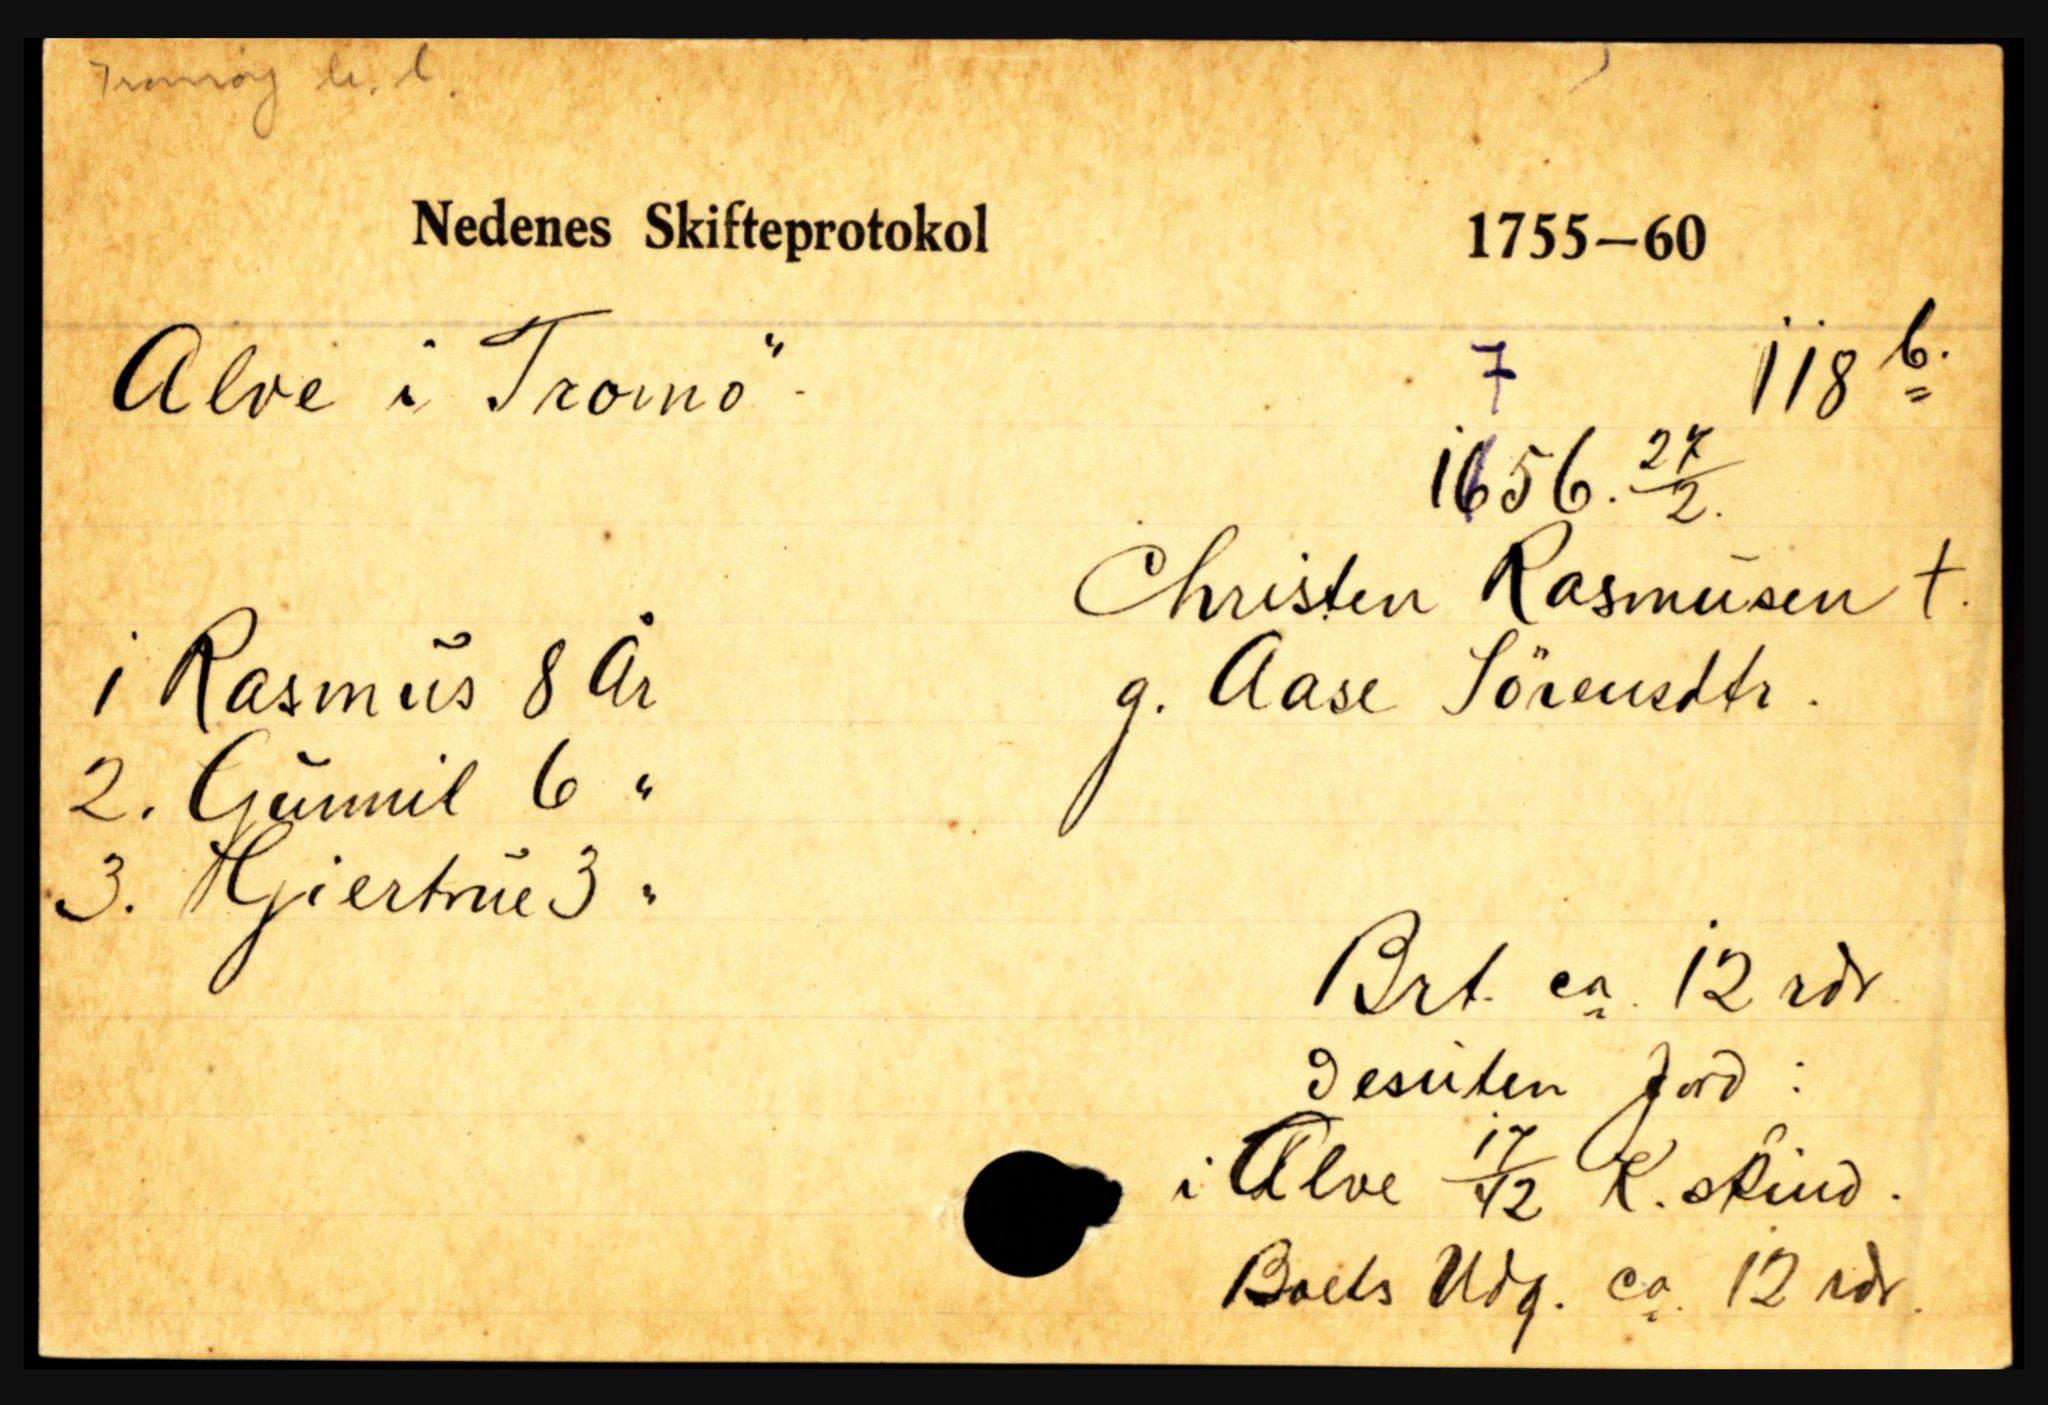 Tromøy
Nedenes Skifteprotokol 1755—60
Alve i Tromö 118 b.
7
1656. 27/2.
Christen Rasmusen †.
g. Aase Sörensdtr.
1 Rasmus 8 År
2. Gunnil 6 "
3. Hjiertrue 3 "
Brt. ca. 12 rdr
desuten Jord :
i Alve 17/12 K. skind.
Boets Udg. ca. 12 rdr.